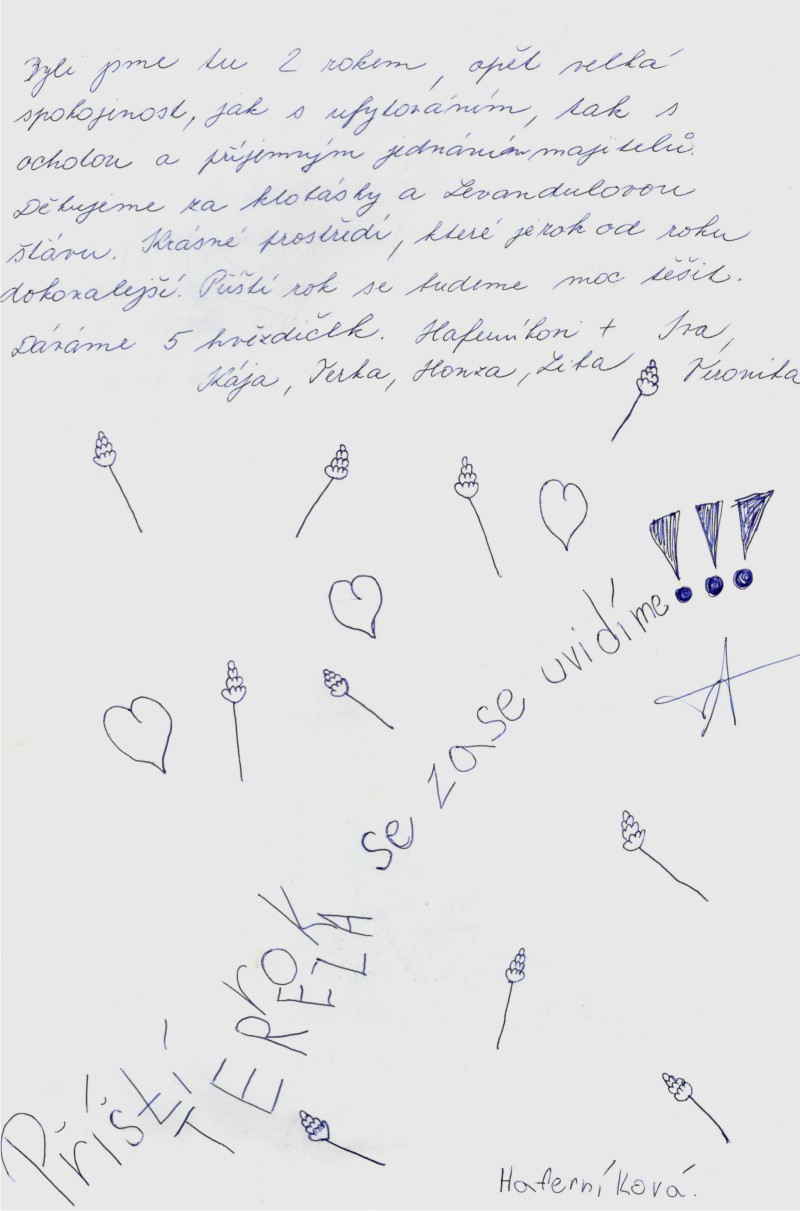 Byli jsme tu 2 rokem, opět velká
spokojenost, jak s ubytováním, tak s
ochotou a příjemným jednáním majitelů.
Děkujeme za klobásky a Levandulovou
šťávu. Krásné prostředí, které je rok od roku
dokonalejší. Příští rok se budeme moc těšit.
Dáváme 5 hvězdiček. Haferníkovi + Iva,
Kája, Terka, Honza, Liba Veronika
Příští rok se zase uvidíme !!!
TEREZA
Haferníková.